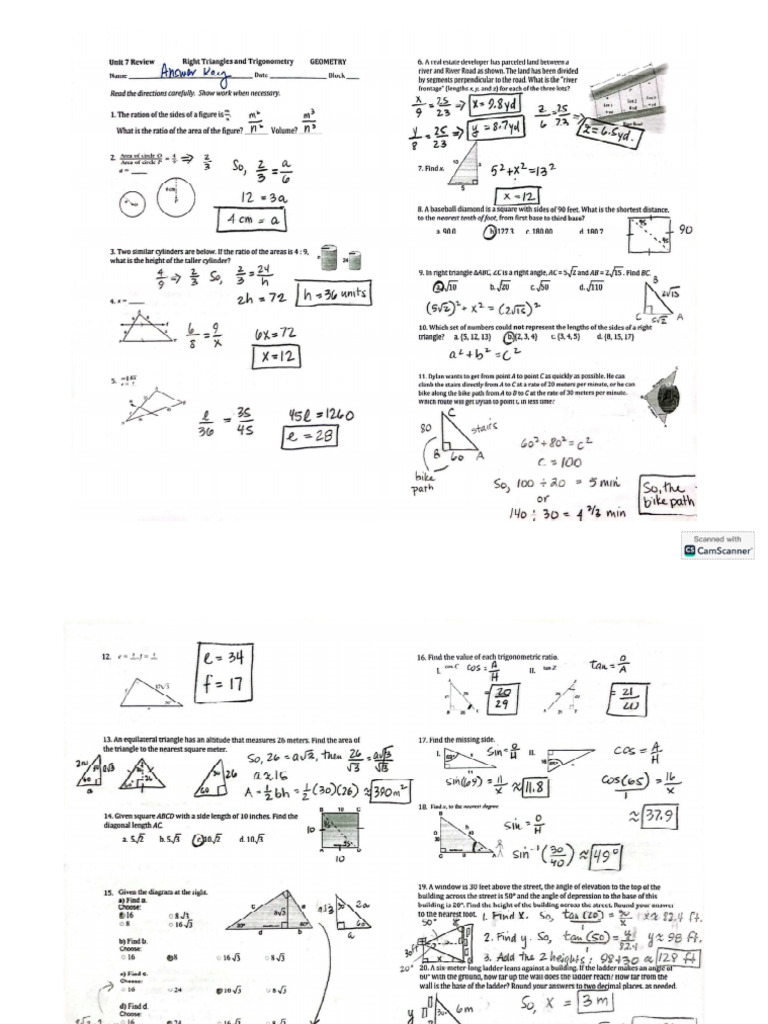 Unit 7 Review Right Triangles and Trigonometry GEOMETRY
Name Answer Key Date Block
Read the directions carefully. Show work when necessary.
1. The ration of the sides of a figure is m/n. m²/n² m³/n³
What is the ratio of the area of the figure? Volume?
2. Area of circle O / Area of circle P = 4/9 ⇒ 2/3 So, 2/3 = a/6
a =
12 = 3a
4 cm = a
3. Two similar cylinders are below. If the ratio of the areas is 4 : 9,
what is the height of the taller cylinder?
4/9 ⇒ 2/3 So, 2/3 = 24/h
2h = 72 h = 36 units
4. x =
6/8 = 9/x 6x = 72
x = 12
5.
e/36 = 35/45 45e = 1260
e = 28
6. A real estate developer has parceled land between a
river and River Road as shown. The land has been divided
by segments perpendicular to the road. What is the "river
frontage" (lengths x, y, and z) for each of the three lots?
x/9 = 25/23 ⇒ x = 9.8 yd z/6 = 25/23 ⇒
y/8 = 25/23 ⇒ y = 8.7 yd z = 6.5 yd.
7. Find x. 5² + x² = 13²
x = 12
8. A baseball diamond is a square with sides of 90 feet. What is the shortest distance,
to the nearest tenth of foot, from first base to third base?
a. 90.0 b. 127.3 c. 180.00 d. 180.7
90
9. In right triangle ΔABC, ∠C is a right angle, AC = 5√2 and AB = 2√15. Find BC
a. √10 b. √20 c. √50 d. √110
(5√2)² + x² = (2√15)²
B 2√15 C 5√2 A
10. Which set of numbers could not represent the lengths of the sides of a right
triangle? a. {5, 12, 13} b. {2, 3, 4} c. {3, 4, 5} d. {8, 15, 17}
a² + b² = c²
11. Dylan wants to get from point A to point C as quickly as possible. He can
climb the stairs directly from A to C at a rate of 20 meters per minute, or he can
bike along the bike path from A to B to C at the rate of 30 meters per minute.
Which route will get Dylan to point C in less time?
C
80 stairs
B 60 A
bike path
60² + 80² = c²
c = 100
So, 100 ÷ 20 = 5 min
or
140 ÷ 30 = 4 2/3 min
So, the bike path
Scanned with
CS CamScanner
12.
e = 34
f = 17
13. An equilateral triangle has an altitude that measures 26 meters. Find the area of
the triangle to the nearest square meter.
So, 26 = a√2, then 26/√3 = a√3/√3
a ≈ 15
A = ½bh = ½(30)(26) ≈ 390 m²
14. Given square ABCD with a side length of 10 inches. Find the
diagonal length AC.
a. 5√2 b. 5√3 c. 10√2 d. 10√3
10
10
15. Given the diagram at the right.
a) Find a.
Choose:
16 8√3
8 16√3
b) Find b.
Choose:
16 8 16√3 8√3
c) Find c.
Choose:
16 24 10√3 8√3
d) Find d.
Choose:
16. Find the value of each trigonometric ratio.
I. cos C cos = A/H II. tan Z tan = O/A
= 20/29
17. Find the missing side.
I. sin = O/H II. cos = A/H
≈ 11.8
cos(65)/1 = 16/x
≈ 37.9
18. Find x, to the nearest degree
sin = O/H
sin⁻¹(30/40) ≈ 49°
19. A window is 30 feet above the street, the angle of elevation to the top of the
building across the street is 50° and the angle of depression to the base of this
building is 20°. Find the height of the building across the street. Round your answer
to the nearest foot. 1. Find x. So, tan(20) = x ≈ 82.4 ft.
50° 2. Find y. So, tan(50) = y/82.4 y ≈ 98 ft.
30ft 3. Add the 2 heights: 98+30 ≈ 128 ft
20° 20. A six-meter long ladder leans against a building. If the ladder makes an angle of
60° with the ground, how far up the wall does the ladder reach? How far from the
wall is the base of the ladder? Round your answers to two decimal places, as needed.
y 6m So, x = 3 m